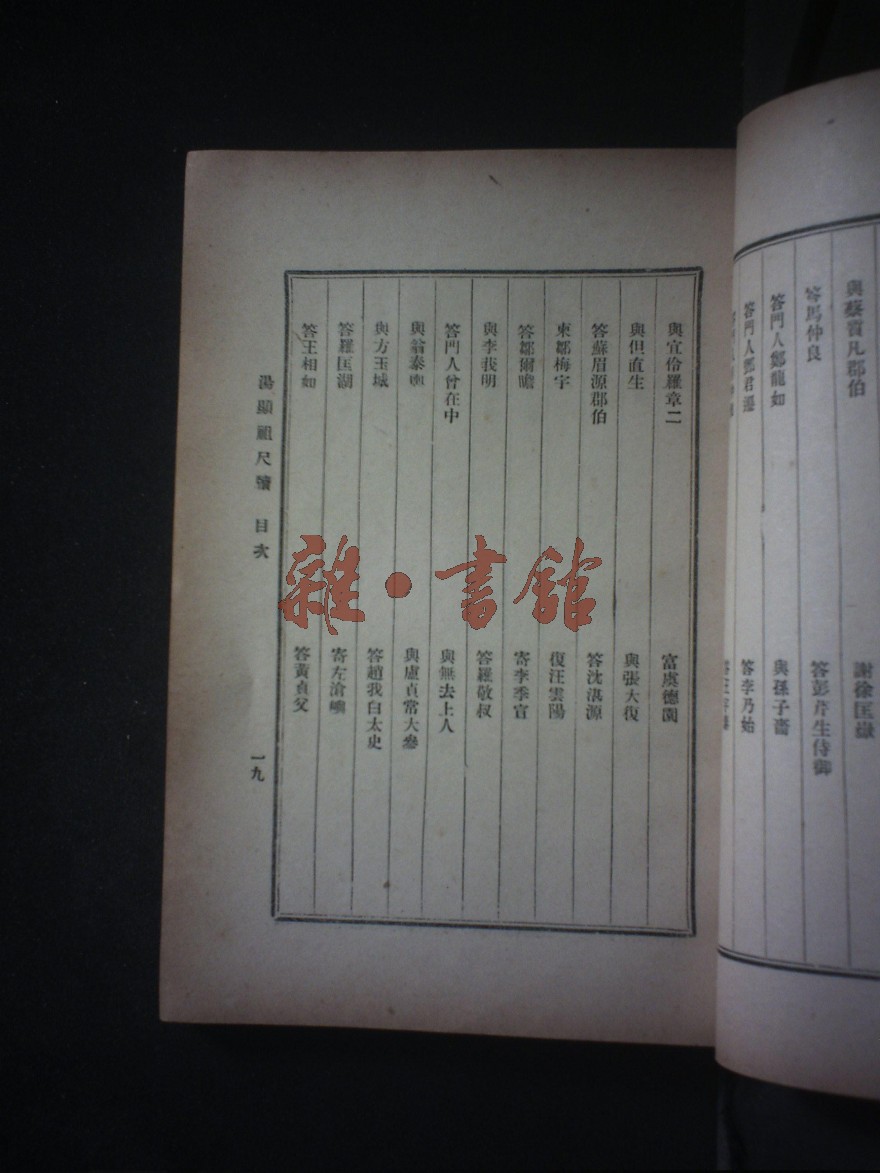 與蔡霞凡郡伯
謝徐匡嶽
答馬仲良
答彭芹生侍御
答門人鄭龍如
與孫子嗇
答門人鄧君遷
答李乃始
與宜伶羅章二
富虞德園
與但直生
與張大復
答蘇眉源郡伯
答沈湛源
柬鄒梅宇
復汪雲陽
答鄒爾瞻
寄李季宣
與李莪明
答羅敬叔
答門人曾在中
與無去上人
與翁泰
與盧貞常大參
與方玉城
答趙我白太史
答羅匡湖
寄左滄嶼
答王相如
答黃貞父
湯顯祖尺牘 目次
一九
雜·書館